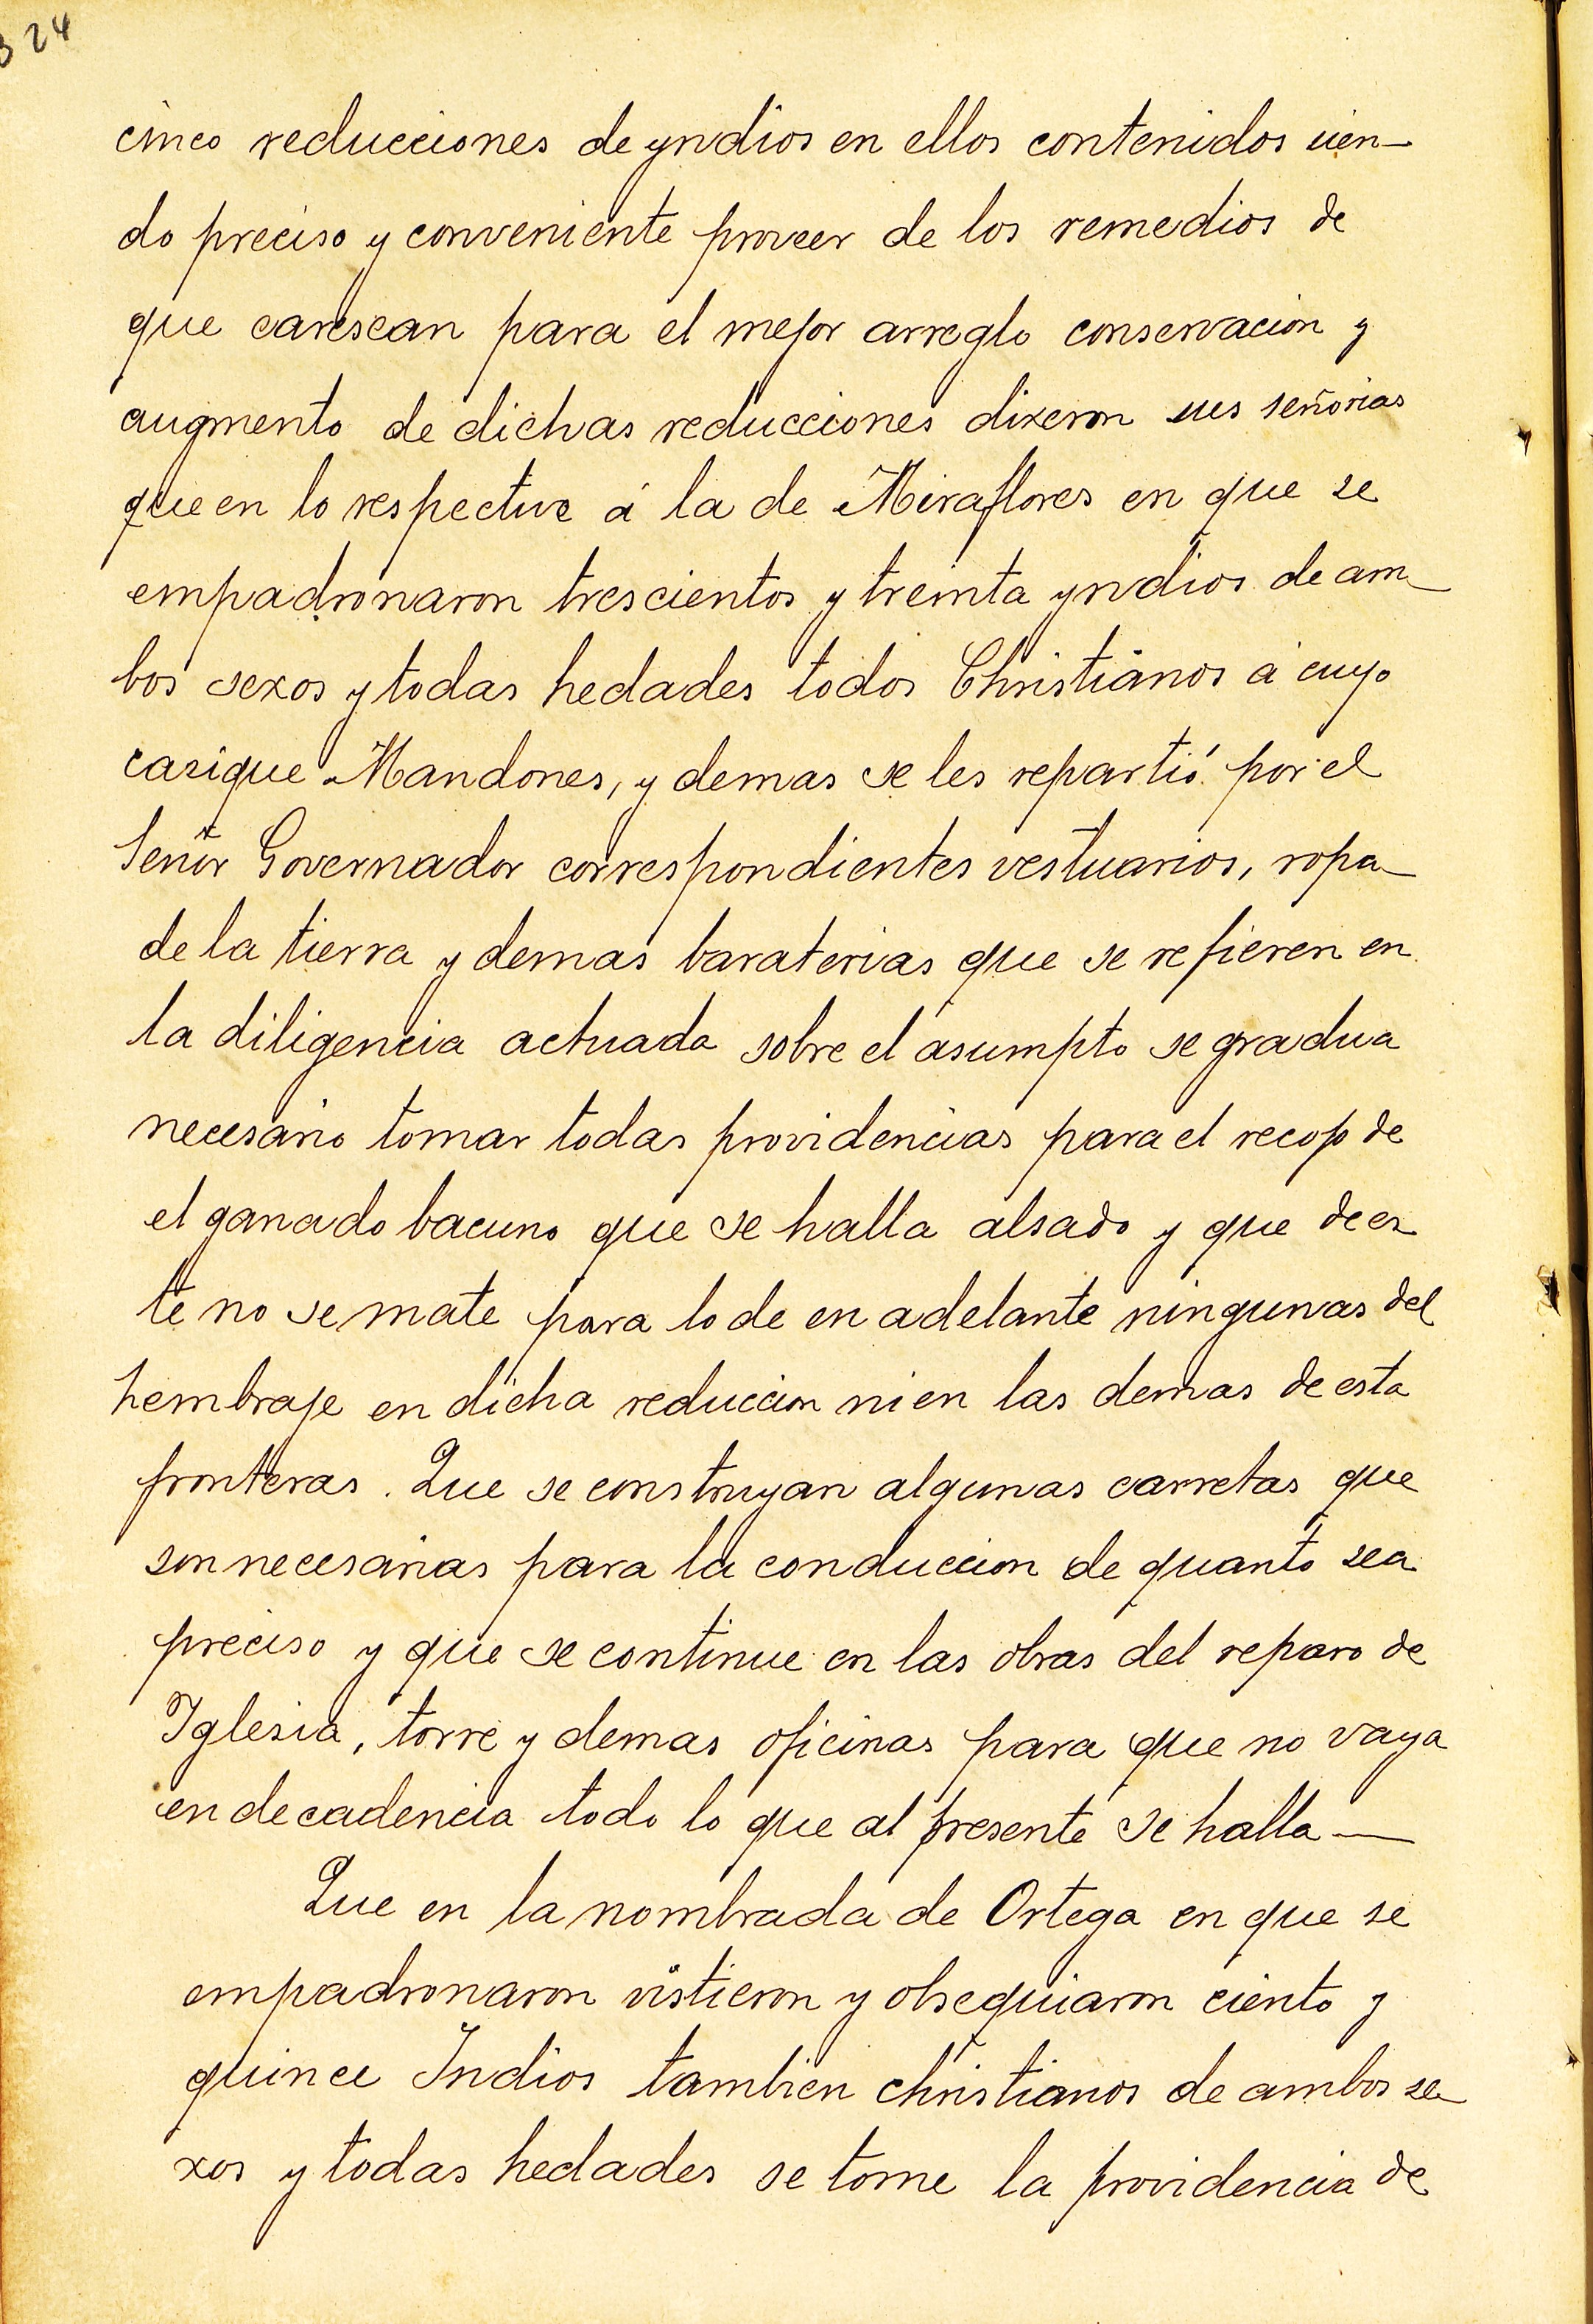 324
cinco reducciones de yndios en ellos contenidos sien-
do preciso y conveniente proveer de los remedios de
que carescan para el mejor arreglo conservacion y
augmento de dichas reducciones dixeron sus señorias
que en lo respective á la de Miraflores en que se
empadronaron trescientos y treinta yndios de am-
bos sexos y todas hedades todos Christianos á cuyo
casique Mandones, y demas se les repartió por el
Señor Governador correspondientes vestuarios, ropa
de la tierra y demas baraterias que se refieren en
la diligencia actuada sobre el asumpto se gradua
necesario tomar todas providencias para el recojo de
el ganado bacuno que se halla alsado y que de es-
te no se mate para lo de en adelante ningunas del
hembraje en dicha reduccion ni en las demas de esta
fronteras. Que se construyan algunas carretas que
son necesarias para la conduccion de quanto sea
preciso y que se continue en las obras del reparo de
Iglesia, torre y demas oficinas para que no vaya
en decadencia todo lo que al presente se halla —
Que en la nombrada de Ortega en que se
empadronaron vistieron y obsequiaron ciento y
quince Indios tambien christianos de ambos se-
xos y todas hedades se tome la providencia de